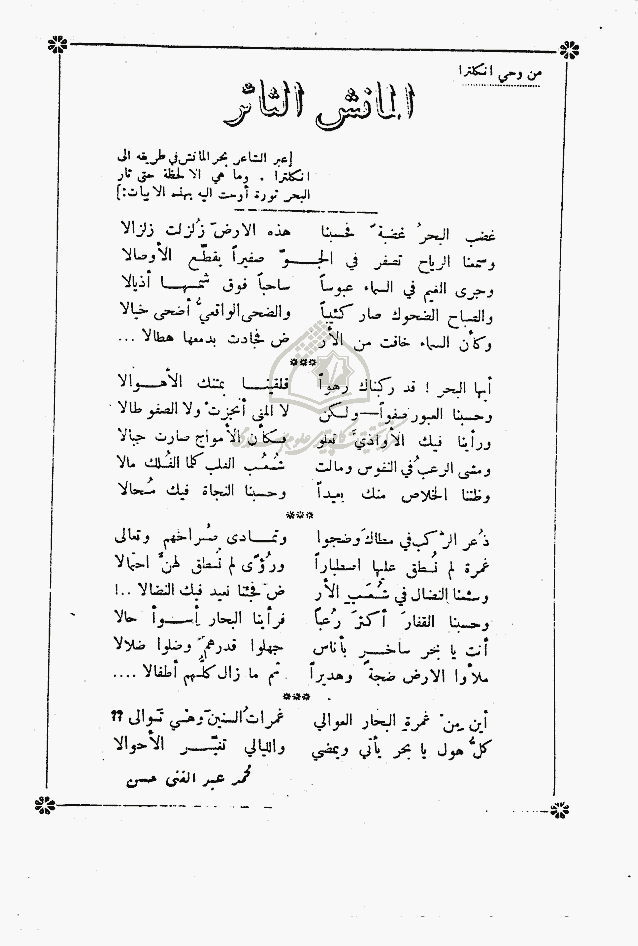 من وحي انكلترا
المانش الثائر
[عبر الشاعر بحر المانش في طريقه الى
انكلترا . وما هي الا لحظة حتى ثار
البحر ثورة أوحت اليه بهذه الابيات:]
غضب البحرُ غضبةً فحسبنا هذه الارضَ زُلزلت زلزالا
وسمعنا الرياح تصفر في الجـــوّ صفيراً يقطّع الأوصالا
وجرى الغيم في السماء عبوساً ساحباً فوق شمسهـا أذيالا
والصباح الضحوك صار كئيباً والضحى الواقعيُّ أضحى خيالا
وكأن السماء خافت من الأر ض فجادت بدمعها هطالا ...
***
أيها البحر ! قد ركبناك رهواً فلقينـــا بمتنك الأهـــوالا
وحسبنا العبور صفواً — ولكن لا المنى أنجزت ولا الصفو طالا
ورأينا فيك الأواذيَّ تعلو فــكأن الأمواج صارت جبالا
ومشى الرعبُ في النفوس ومالت شُعُبُ القلب كلما الفُلك مالا
وظننا الخلاص منك بعيداً وحسبنا النجاة فيك مُحالا
***
ذُعر الرَّكبُ في مطاك وضجوا وتمــادى صُراخهم وتعالى
غمرة لم نُطق عليها اصطباراً ورُؤًى لم نُطق لهنَّ احتمالا
وسئمنا النضال في شُعَبِ الأر ض فجئنا نعيد فيك النضالا ..!
وحسبنا القفار أكثرَ رُعباً فرأينا البحار أســوأ حالا
أنت يا بحر ساخــر بأناس جهلوا قدرهمْ وضلوا ضلالا
ملأوا الارض ضجةً وهديراً ثم ما زال كلُّهم أطفالا ....
***
أين مِن غمرةِ البحار العوالي غمراتُ السنينَ وهْي تَوالى ؟؟
كلُّ هول يا بحر يأتي ويمضي والليالي تغيّــر الأحوالا
محمد عبد الغنى حسن